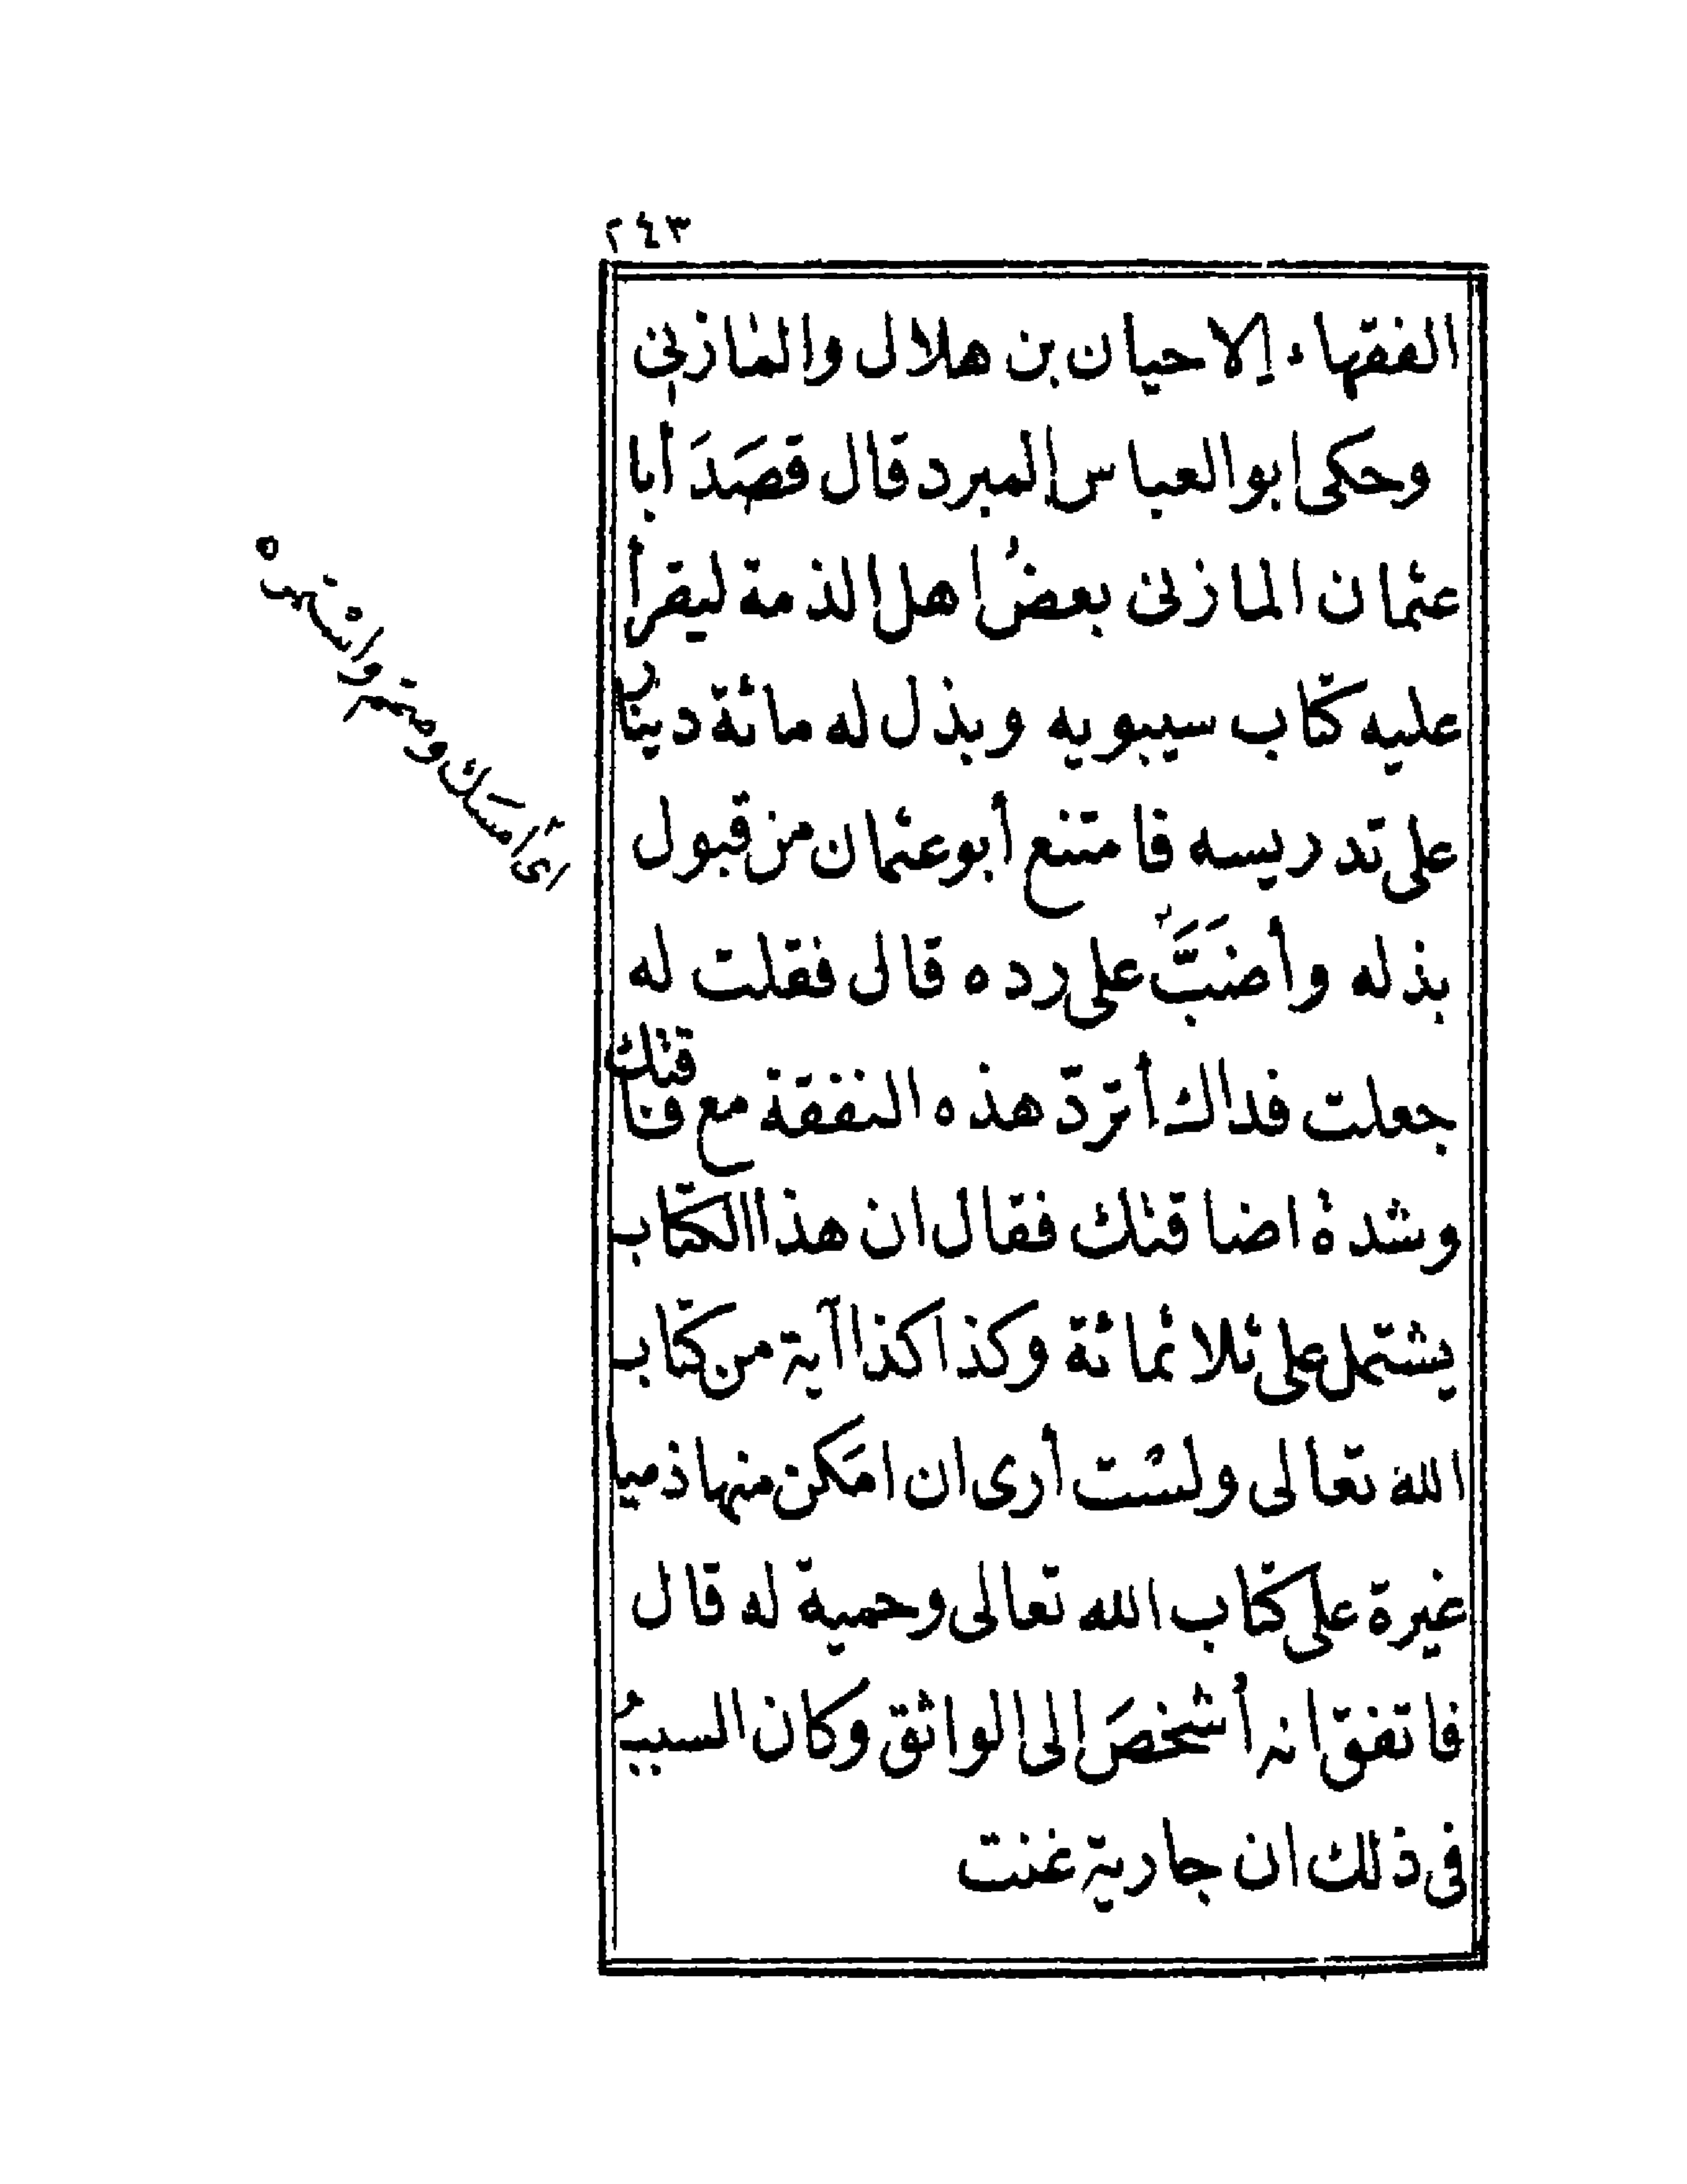 ٢٤٣
الفقهاء إلا حيان بن هلال والمازني
وحكى ابو العباس المبرد قال قصَدَ أبا
عثمان المازنى بعضُ اهل الذمة ليقرأ
عليه كتاب سيبويه وبذل له مائة دينار
على تدريسه فامتنع أبو عثمان من قبول
بذله وأضَبَّ على رده قال فقلت له
جعلت فداك أتردّ هذه النفقة مع فاقتك
وشدة اضاقتك فقال ان هذا الكتاب
يشتمل على ثلاثمائة وكذا كذا آية من كتاب
الله تعالى ولست أرى ان امَكن منها ذميا
غيرة على كتاب الله تعالى وحمية له قال
فاتفق انه أُشخصَ الى الواثق وكان السببُ
فى ذلك ان جارية غنت
اى أمسَك وصمّم